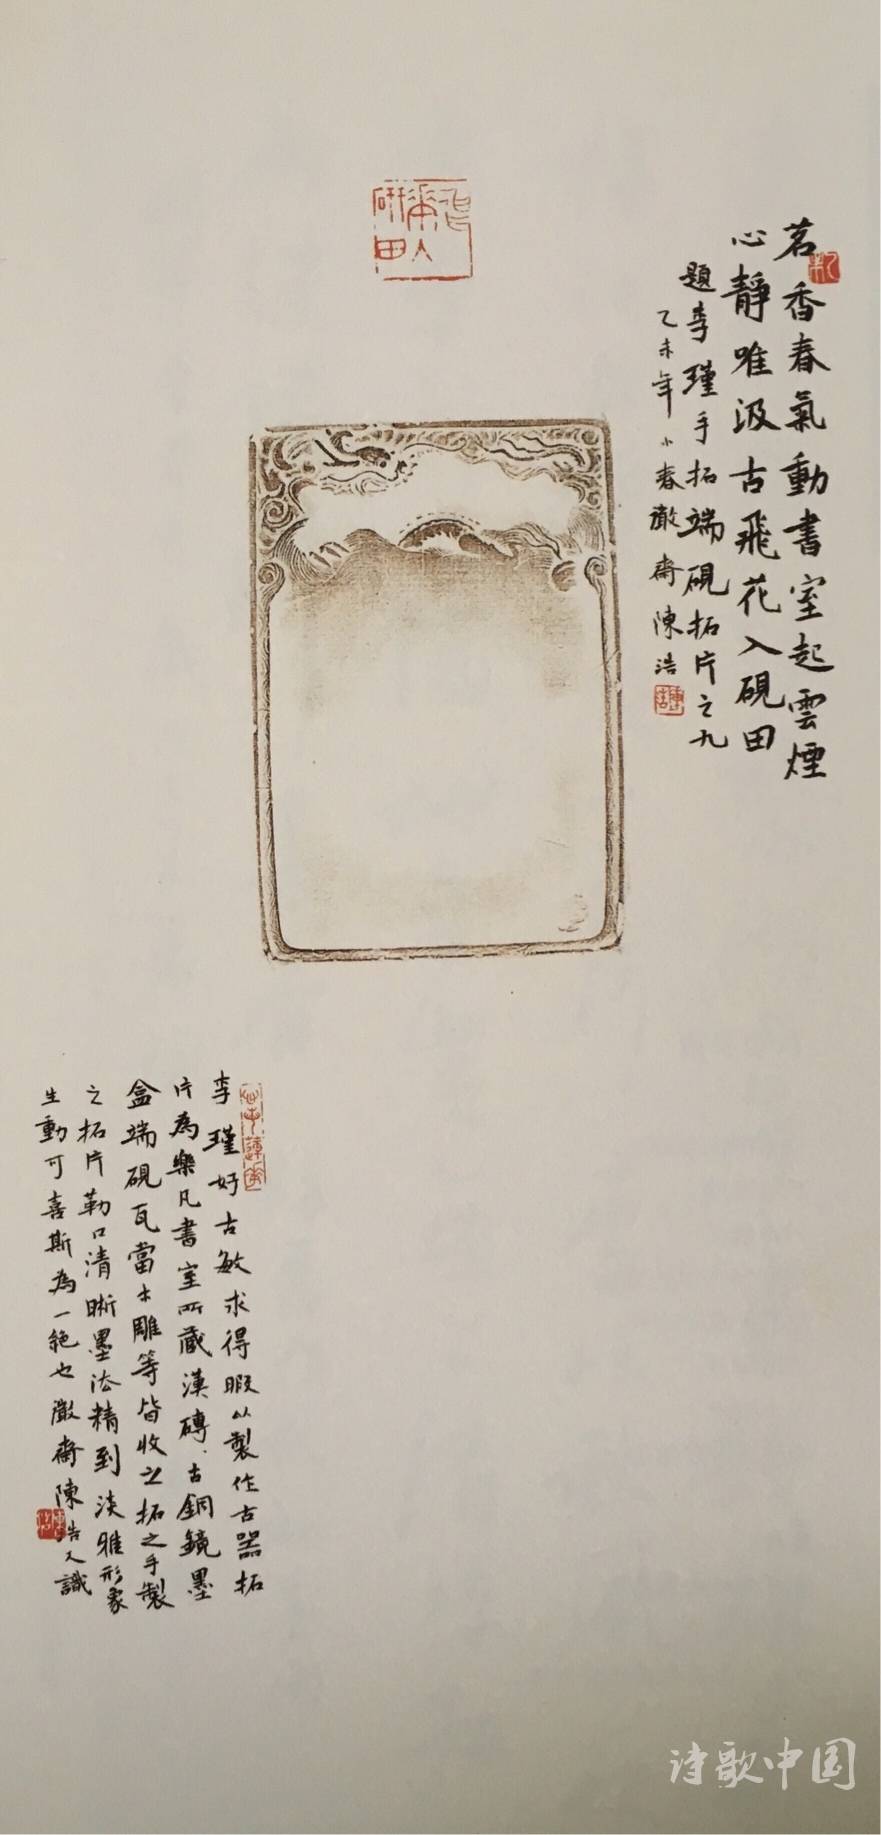 飛花入研田
茗香春氣動書室起雲煙
心靜唯汲古飛花入硯田
題李瑾手拓端硯拓片之九
乙未年小春澂齋陳浩
李瑾好古敏求得暇以製作古器拓
片為樂凡書室所藏漢磚、古銅鏡墨
盒端硯瓦當木雕等皆收之拓之手製
之拓片勒口清晰墨法精到淡雅形象
生動可喜斯為一絕也澂齋陳浩又識
诗歌中国